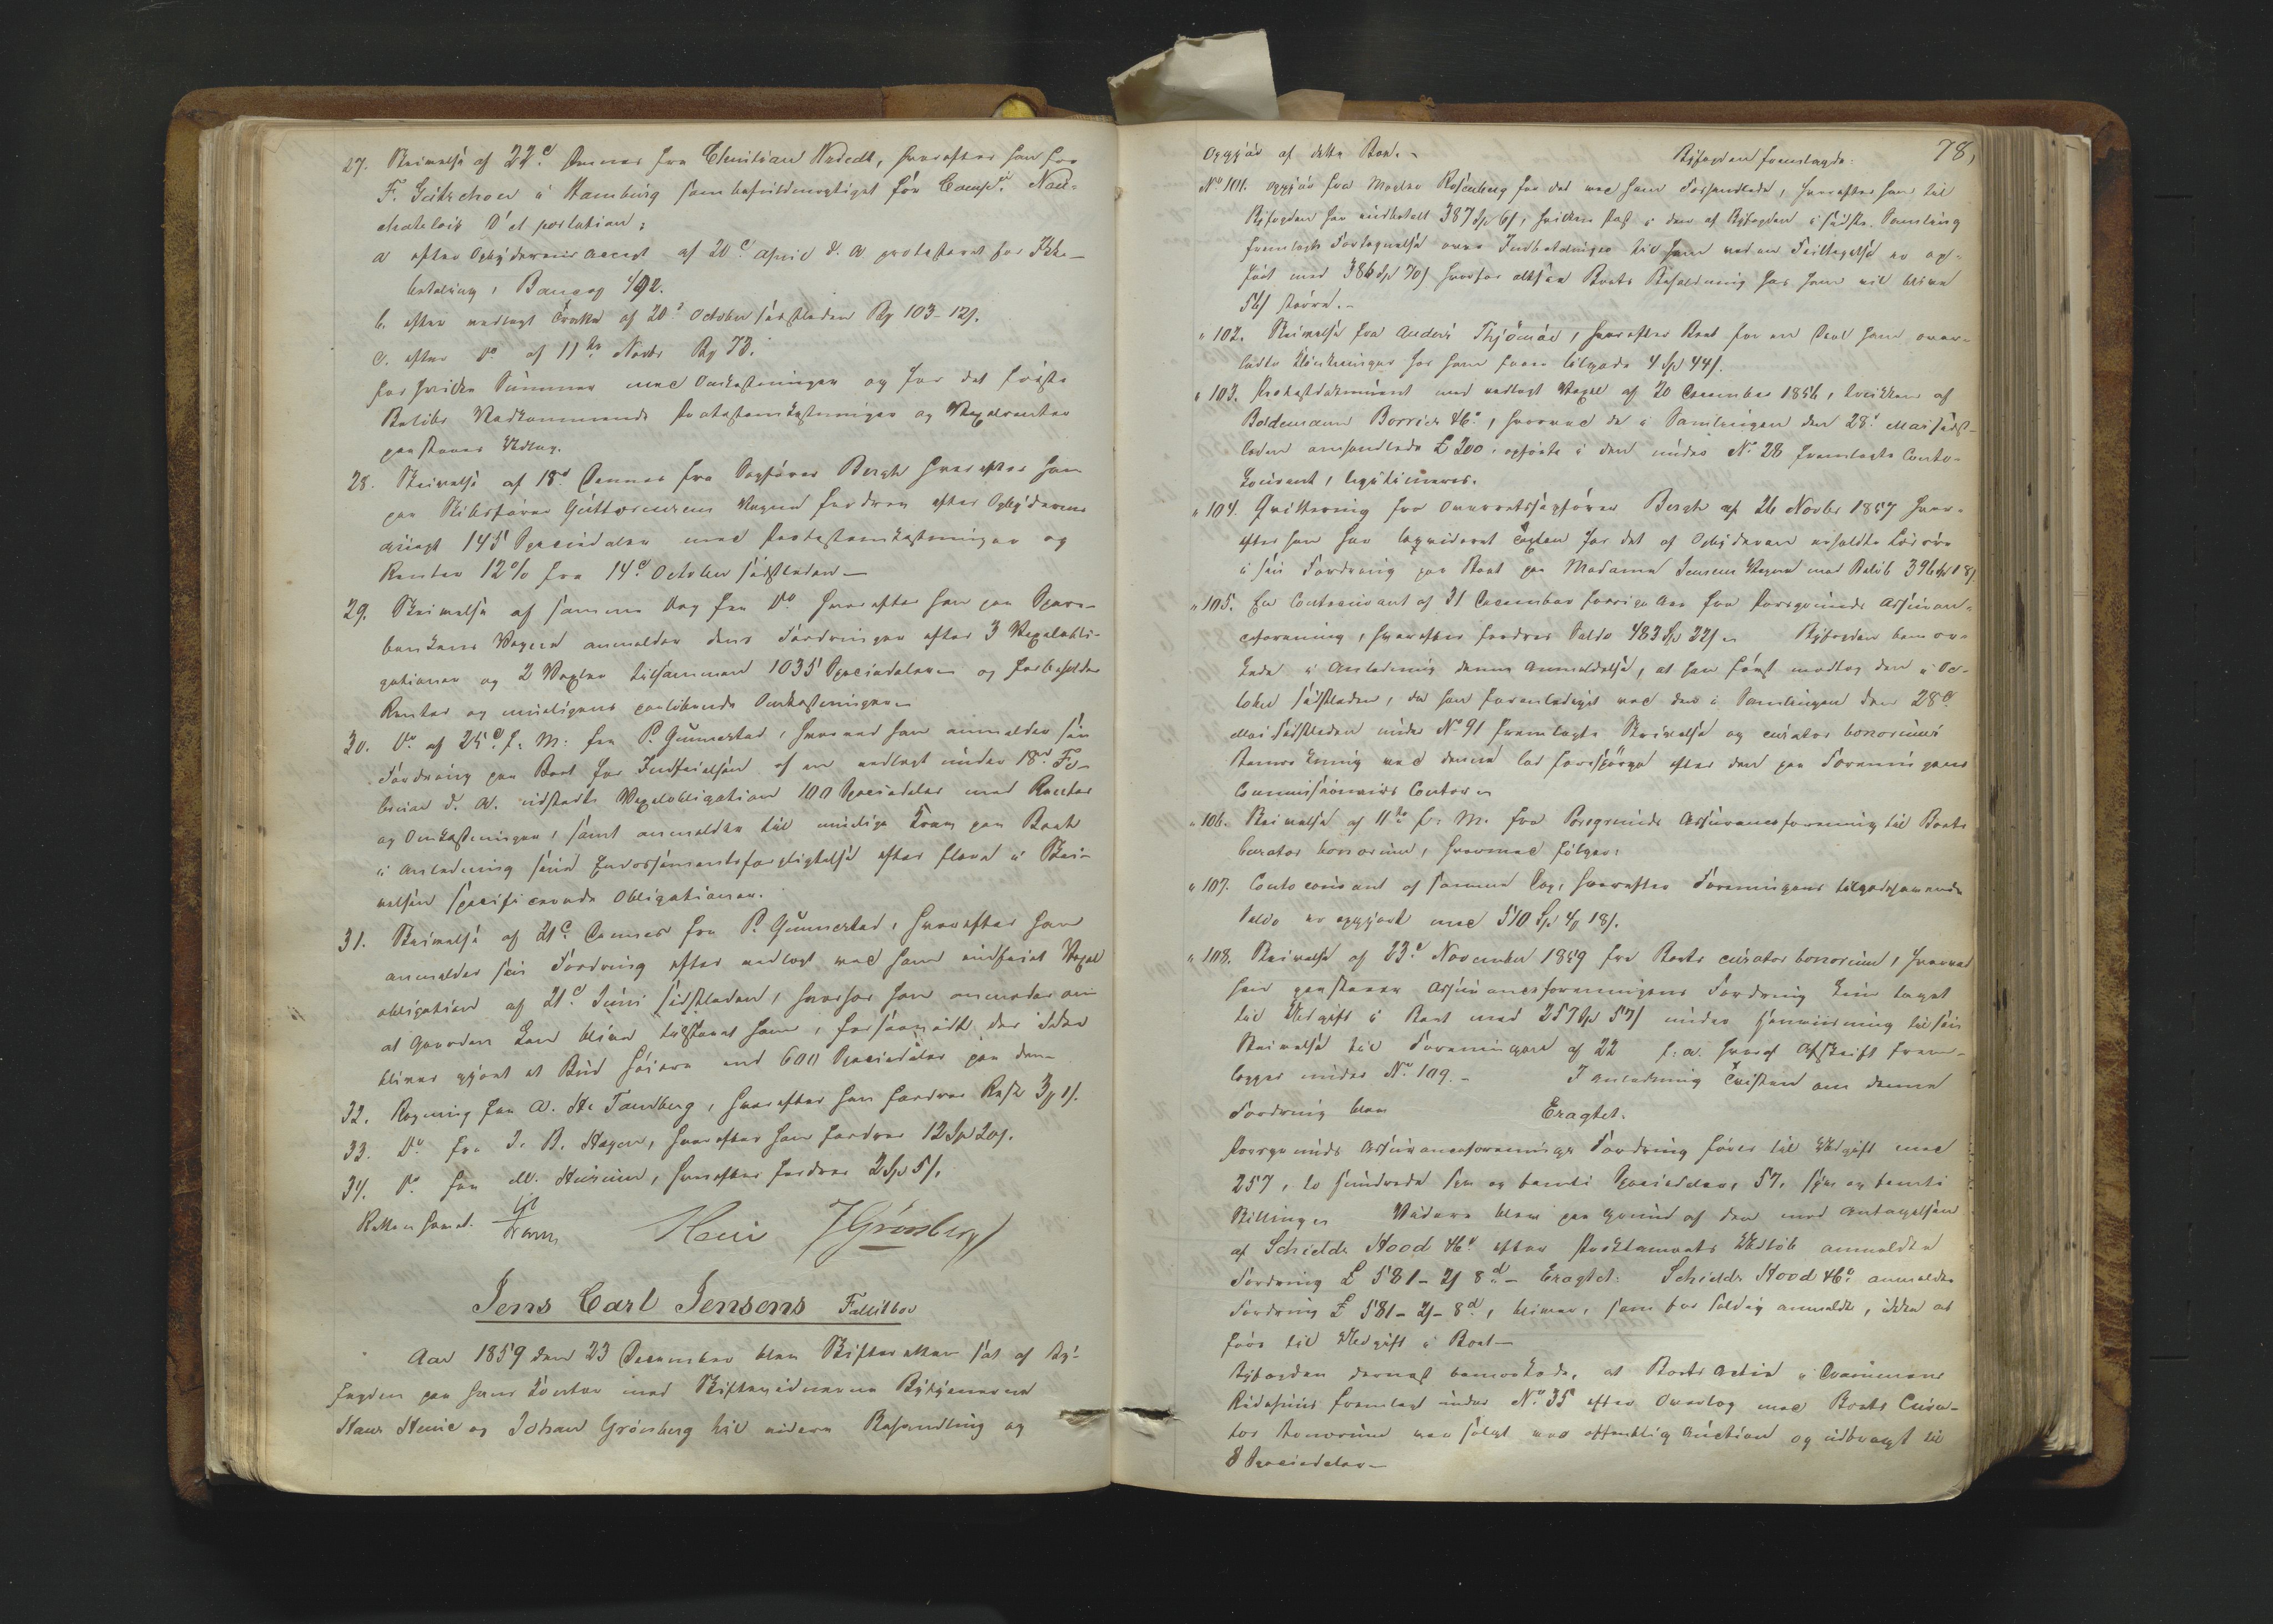 27. Skrivelse af 22d Dennes fra Christian Nedecll, hvorefter han for
F. Gütschow i Hamburg som befuldmægtiget for Comp.
D'et portation;
a efter Opbyderens accept af 20d April d. A protesteret for Ikke
betaling, Banco 492.
b. efter vedlagt Tratte af 20d October sidstleden 103-12ß.
c. efter Do af 11te Novbr 73.
for hvilke Summer med Omkostninger og for det første
Beløbs Vedkommende Protestomkostninger og Vexelrenter
paastaaes Udlæg.
28. Skrivelse af 18d Dennes fra Sagfører Bergh hvorefter han
paa Skibsfører Guttormsens Vegne fordrer efter Opbyderens
accept 145 Speciedaler med Protestomkostninger og
Renter 12% fra 14d October sidstleden —
29. Skrivelse af samme Dag fra Do hvorefter han paa Spare-
bankens Vegne anmelder dens Fordringer efter 3 Vexelobli-
gationer og 2 Vexler tilsammen 1035 Speciedaler og forbeholder
Renter og muligens paaløbende Omkostninger
30. Do af 25d f. M. fra P. Gunnestad, hvorved han anmelder sin
Fordring paa Boet for Indfrielsen af en vedlagt under 18d Fe-
bruar d. A. udstedt Vexelobligation 100 Speciedaler med Renter
og Omkostninger, samt anmelder til mulige Krav paa Boet
i Anledning sine Endossementsforpligtelse efter flere i Skri-
velsen specificerede Obligationer.
31. Skrivelse af 21d Dennes fra P. Gunnestad, hvorefter han
anmelder sin Fordring efter vedlagt med ham indfriet Vexel
obligation af 21d Juni sidstleden, hvorfor han anmoder om
at Gaarden kan blive tilstaaet ham, forsaavidt der ikke
bliver gjort et Bud høiere end 600 Speciedaler paa den
32. Regning fra A. H. Tandberg, hvorefter han fordrer Rest 3
33. Do fra J. B. Hagen, hvorefter han fordrer 12 Sp 20ß.
34. Do fra M. Husum, hvorefter fordres 2 Sp 5ß.
Retten hævet.
Henic J Grönsberg
Jens Carl Jensens Fallitbo
Aar 1859 den 23 December blev Skifteretten sat af By-
fogden paa hans Kontor med Skiftevidnerne Bytjenerne
Hans Henic og Johan Grönsberg til videre Behandling og
78,
Opgjør af dette Bo. Byfogden fremlagde:
No 101. opgjør fra Mægler Rosenberg for det ved ham Forhandlede, hvorefter han til
Byfogden har indbetalt 387 Sp 6ß, hvilken Post i den af Byfogden i sidste Samling
fremlagte Fortegnelse over Indbetalinger til ham ved en Feiltagelse er op-
ført med 386 Sp 70ß hvorfor altsaa Boets Beholdning hos ham vil blive
56ß større.
" 102. Skrivelse fra Anders Thjömöe, hvorefter Boet for en Deel ham over-
ladte hos ham faaer tilgode 4 Sp 44ß.
" 103. Protestdokument med vedlagt Vexel af 20 December 1856, trukken af
Boldemann Borries & Co, hvorved de i Samlingen den 28d Mai sidst-
leden omhandlede £ 200, opførte i den under No 28 fremlagte Conto-
Courant, legitimeres.
" 104. Qvittering fra Overretssagfører Bergh af 26 Novbr 1857 hvor-
efter han har liqvideret for det af Opbyderen erholdte
i sin Fordring paa Boet paa Madame Jensens Vegne med Beløb 396 Sp 18ß
" 105. En Contocourant af 31 December forrige Aar fra Porsgrunds Assuran-
ceforening, hvorefter fordres Saldo 483 Sp 22ß Byfogden bemær-
kede i Anledning denne Anmeldelse, at han først modtog den i Oc-
tober sidstleden, da han foranlediget ved den i Samlingen den 28d
Mai sidstleden under No 91 fremlagte Skrivelse og curator bonorums
Bemærkning ved denne lod forespørge efter den paa Foreningens
Commissionairs Contor
" 106. Skrivelse af 11te f. M. fra Porsgrunds Assuranceforening til Boets
Curator bonorum, hvormed følger:
" 107. Conto courant af samme Dag, hvorefter Foreningens tilgodehavende
Saldo er opgjort med 510 Sp 18ß.
" 108. Skrivelse af 23d November 1859 fra Boets curator bonorum, hvorved
han paastaaer Assuranceforeningens Fordring kun taget
til Udgift i Boet med 257 Sp 57ß under Henvisning til sin
Skrivelse til Foreningen af 22 s. A. hvoraf Afskrift frem-
lægges under No 109. - I Anledning Tvisten om denne
Fordring blev Eragtet:
Porsgrunds Assuranceforenings Fordring føres til Udgift med
257, to hundrede syv og femti Speciedaler, 57, syv og femti
Skilling Videre blev paa Grund af den mod Antagelsen
af Schields Hood & Co efter Proklamaets Udløb anmeldte
Fordring £ 581 - 2ß 8d - Eragtet: Schields Hood & Co anmeldte
Fordring £ 581 - 2ß - 8d, bliver, som for sildig anmeldt, ikke at
føre til Udgift i Boet -
Byfogden dernæst bemærkede, at Boets Actie i Drammens
Ridehuus fremlagt under No 35 efter Overlæg med Boets Cura-
tor bonorum var solgt ved offentlig Auction og udbragt til
8 Speciedaler -